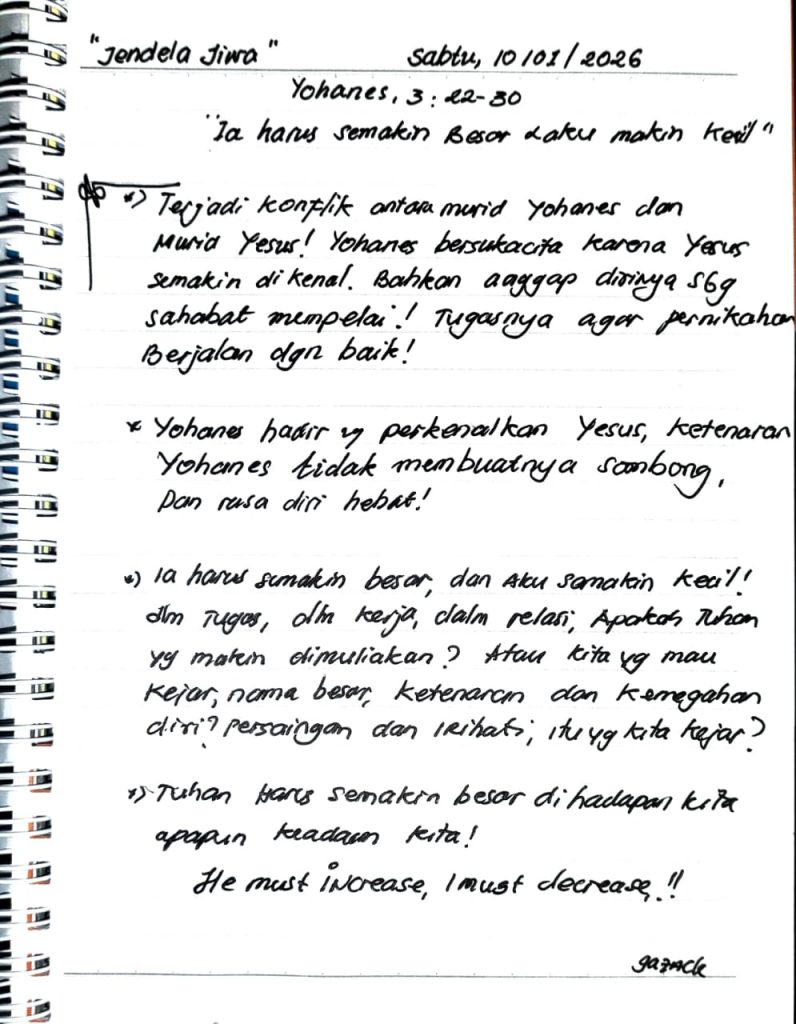 "Jendela Jiwa" Sabtu, 10/01/2026
Yohanes, 3 : 22-30
"Ia harus semakin Besar & aku makin Kecil"
*) Terjadi Konflik antara murid Yohanes dan
Murid Yesus! Yohanes bersukacita karena Yesus
semakin di kenal. Bahkan anggap dirinya sbg
sahabat mempelai! Tugasnya agar pernikahan
Berjalan dgn baik!
* Yohanes hadir yg perkenalkan Yesus, Ketenaran
Yohanes tidak membuatnya sombong,
Dan rasa diri hebat!
*) Ia harus semakin besar, dan Aku samakin Kecil!
dlm Tugas, dlm Kerja, dalm relasi, Apakah Tuhan
yg makin dimuliakan? Atau kita yg mau
Kejar, nama besar, Ketenaran dan Kemegahan
diri? Persaingan dan Irihati, itu yg kita Kejar?
*) Tuhan Harus semakin besar di hadapan kita
apapun keadaan kita!
He must increase, I must decrease,!!
gazack